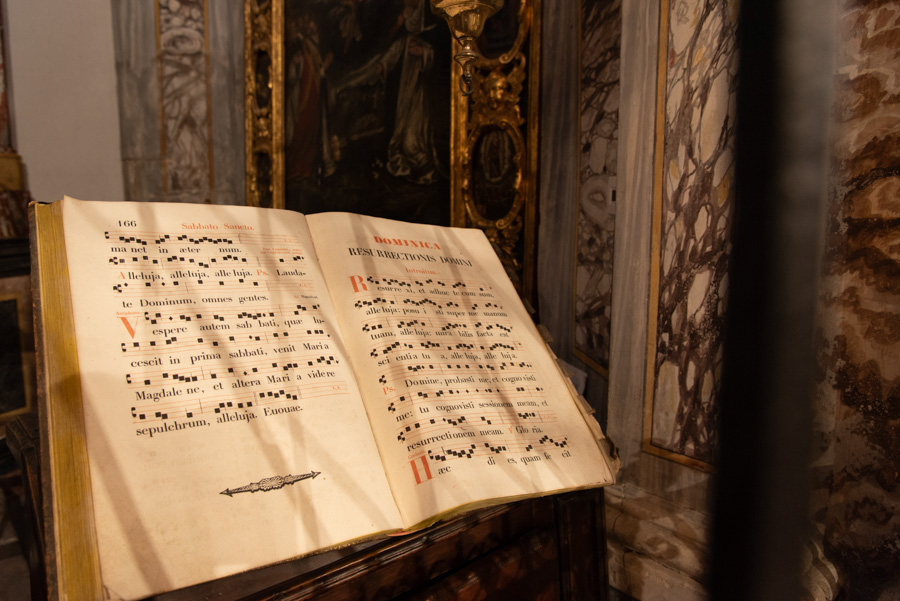 166
Sabbato Sancto.
ma net in æter num.
A lleluja, alleluja, alle luja. Ps. Lauda-
te Dominum, omnes gentes.
V espere autem sab bati, quæ lu-
cescit in prima sabbati, venit Maria
Magdale ne, et altera Mari a videre
sepulchrum, alleluja. Euouae.
DOMINICA
RESURRECTIONIS DOMINI
Introitus.
R esurre xi, et adhuc te cum sum,
alle luja: posu i sti super me manum
tuam, alle luja: mira bilis facta est
sci entia tu a, alle luja, alle luja.
Ps. Domine, probasti me, et cogno visti
me: tu cognovisti sessionem meam, et
resurrectionem meam. Glo ria.
H æc di es, quam fe cit